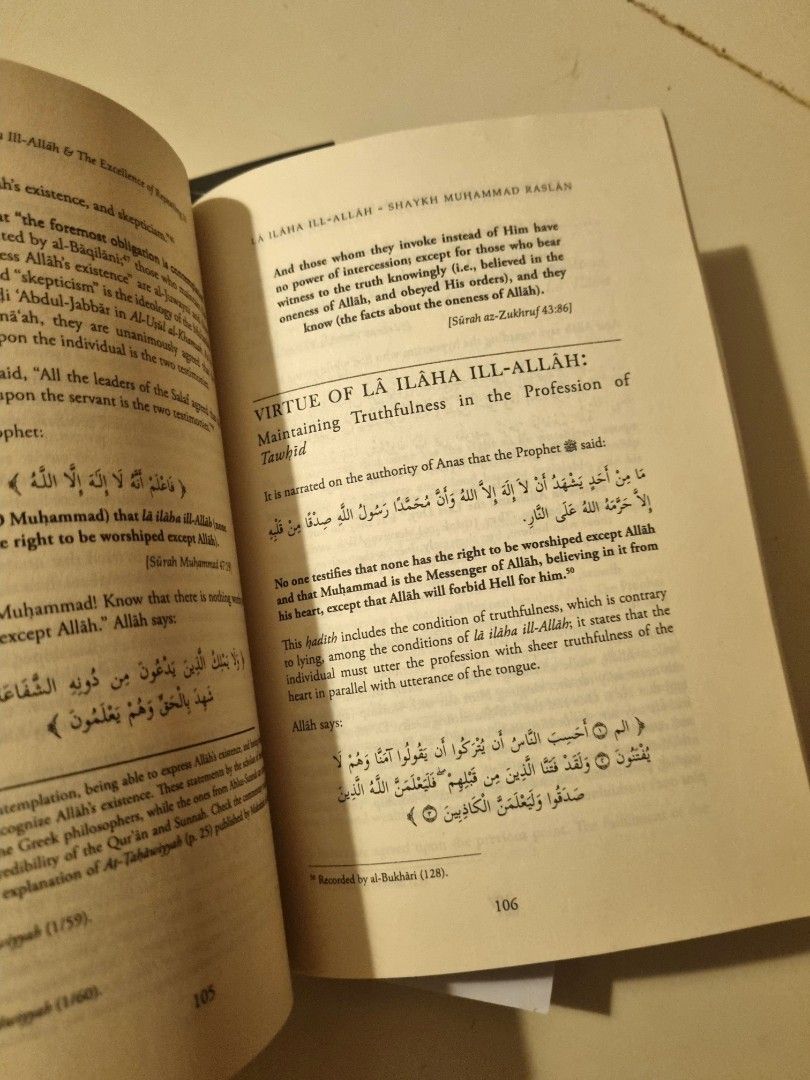 Ill-Allāh & The Excellence of
h's existence, and skepticism."
"the foremost obligation is
ted by al-Bāqilāni; those who
ess Allāh's existence" are al-Juwayni
d "skepticism" is the ideology of the
'Abdul-Jabbār in Al-Uṣūl al-Khamsah
nā'ah, they are unanimously agreed that
pon the individual is the two testimonies.
aid, "All the leaders of the Salaf agreed that
upon the servant is the two testimonies."
ophet:
﴿ فَاعْلَمْ أَنَّهُ لَا إِلَهَ إِلَّا اللَّهُ ﴾
Muḥammad) that lā ilāha ill-Allāh (none
e right to be worshiped except Allāh).
[Sūrah Muḥammad 47:19
Muḥammad! Know that there is nothing
except Allāh." Allāh says:
﴿ وَلَا يَمْلِكُ الَّذِينَ يَدْعُونَ مِن دُونِهِ الشَّفَاعَةَ
شَهِدَ بِالْحَقِّ وَهُمْ يَعْلَمُونَ ﴾
templation, being able to express Allāh's existence, and
cognize Allāh's existence. These statements by the scholar
he Greek philosophers, while the ones from Ahlus-Sunnah
redibility of the Qur'ān and Sunnah. Check the
explanation of Aṭ-Ṭaḥāwiyyah (p. 25) published by
wiyyah (1/59).
āwiyyah (1/60).
105
LĀ ILĀHA ILL-ALLĀH - SHAYKH MUḤAMMAD RASLĀN
And those whom they invoke instead of Him have
no power of intercession; except for those who bear
witness to the truth knowingly (i.e., believed in the
oneness of Allāh, and obeyed His orders), and they
know (the facts about the oneness of Allāh).
[Sūrah az-Zukhruf 43:86]
VIRTUE OF LÂ ILÂHA ILL-ALLÂH:
Maintaining Truthfulness in the Profession of
Tawḥīd
It is narrated on the authority of Anas that the Prophet ﷺ said:
مَا مِنْ أَحَدٍ يَشْهَدُ أَنْ لاَ إِلَهَ إِلاَّ اللهُ وَأَنَّ مُحَمَّدًا رَسُولُ اللَّهِ صِدْقًا مِنْ قَلْبِهِ
إِلاَّ حَرَّمَهُ اللهُ عَلَى النَّارِ.
No one testifies that none has the right to be worshiped except Allāh
and that Muḥammad is the Messenger of Allāh, believing in it from
his heart, except that Allāh will forbid Hell for him.⁵⁰
This ḥadīth includes the condition of truthfulness, which is contrary
to lying, among the conditions of lā ilāha ill-Allāh; it states that the
individual must utter the profession with sheer truthfulness of the
heart in parallel with utterance of the tongue.
Allāh says:
﴿ الم ۝١ أَحَسِبَ النَّاسُ أَن يُتْرَكُوا أَن يَقُولُوا آمَنَّا وَهُمْ لَا
يُفْتَنُونَ ۝٢ وَلَقَدْ فَتَنَّا الَّذِينَ مِن قَبْلِهِمْ ۖ فَلَيَعْلَمَنَّ اللَّهُ الَّذِينَ
صَدَقُوا وَلَيَعْلَمَنَّ الْكَاذِبِينَ ۝٣ ﴾
⁵⁰ Recorded by al-Bukhāri (128).
106